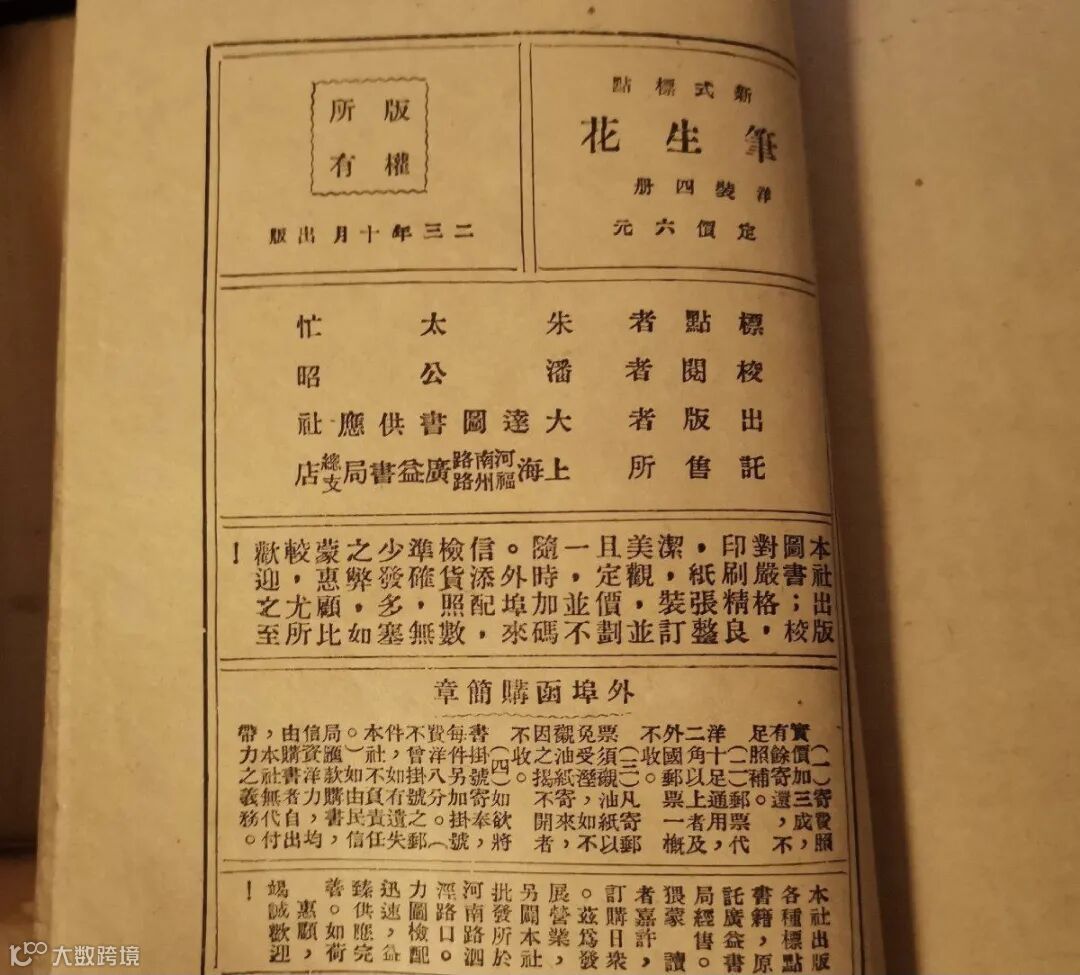 新式標點
筆生花
洋裝四册
定價六元
版權
所有
二三年十月出版
標點者　朱太忙
校閱者　潘公昭
出版者　大達圖書供應社
託售所　上海河南路福州路廣益書局總支店
本社出版
圖書；校
對嚴格，
印刷精良
，紙張整
潔，裝訂
美觀，並
且定價劃
一，並不
隨時加碼
。外埠來
信添配，
檢貨照數
準確，無
少發多塞
之弊，如
蒙惠顧比
較，尤所
歡迎之至
！
外埠函購簡章
（一）寄費照
實價加三成，
有餘寄還，不
足照補。
（二）郵票代
洋十足通用，
二角以上者及
外國郵票一概
不收。
（三）凡寄郵
票須襯油紙以
免受溼，如不
襯油紙寄來，
因之揭不開者
不收。
（四）如欲將
書掛號寄奉，
每件另加掛號
費洋八分。（
不曾掛號之郵
件，如有遺失
本社不負責任
。）如由民信
局匯款購書，
信資洋力，均
由購書者自出
，本社無代付
帶力之義務。
本社出版
各種標點
書籍，原
託廣益書
局經售。
猥蒙　讀
者嘉許，
訂購日衆
。茲爲發
展營業，
另闢本社
批發所於
河南路泗
涇路口。
力圖檢配
迅速，益
臻供應完
善。如荷
惠顧，
竭誠歡迎
！
大数跨境